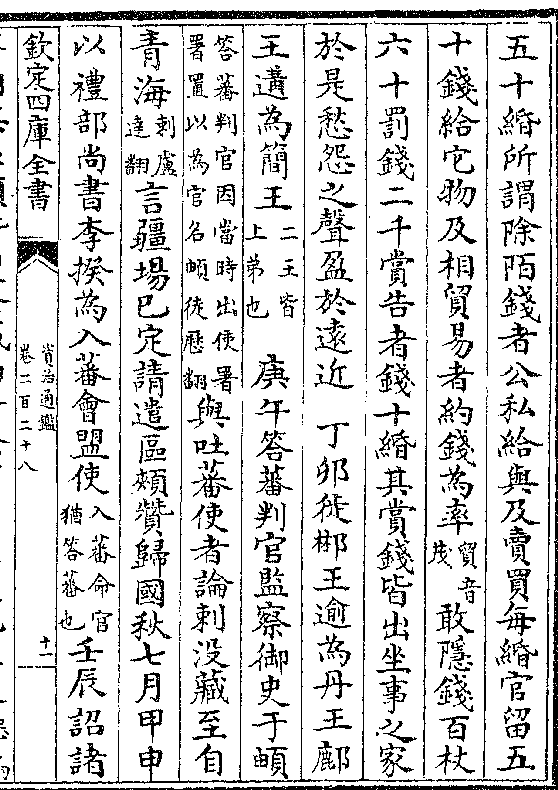 五十緡所謂除陌錢者公私給與及賣買每緡官留五
十錢給它物及相貿易者約錢為率貿音茂敢隱錢百杖
六十罰錢二千賞告者錢十緡其賞錢皆出坐事之家
於是愁怨之聲盈於遠近 丁卯徙郴王逾為丹王鄜
王遘為簡王二王皆上弟也 庚午答蕃判官監察御史于頔
答蕃判官因當時出使署署置以為官名頔徒歷翻與吐蕃使者論剌没藏至自
青海剌盧達翻言疆場已定請遣區頰贊歸國秋七月甲申
以禮部尚書李揆為入蕃會盟使入蕃命官猶答蕃也壬辰詔諸
欽定四庫全書
資治通鑑
卷二百二十八
十一